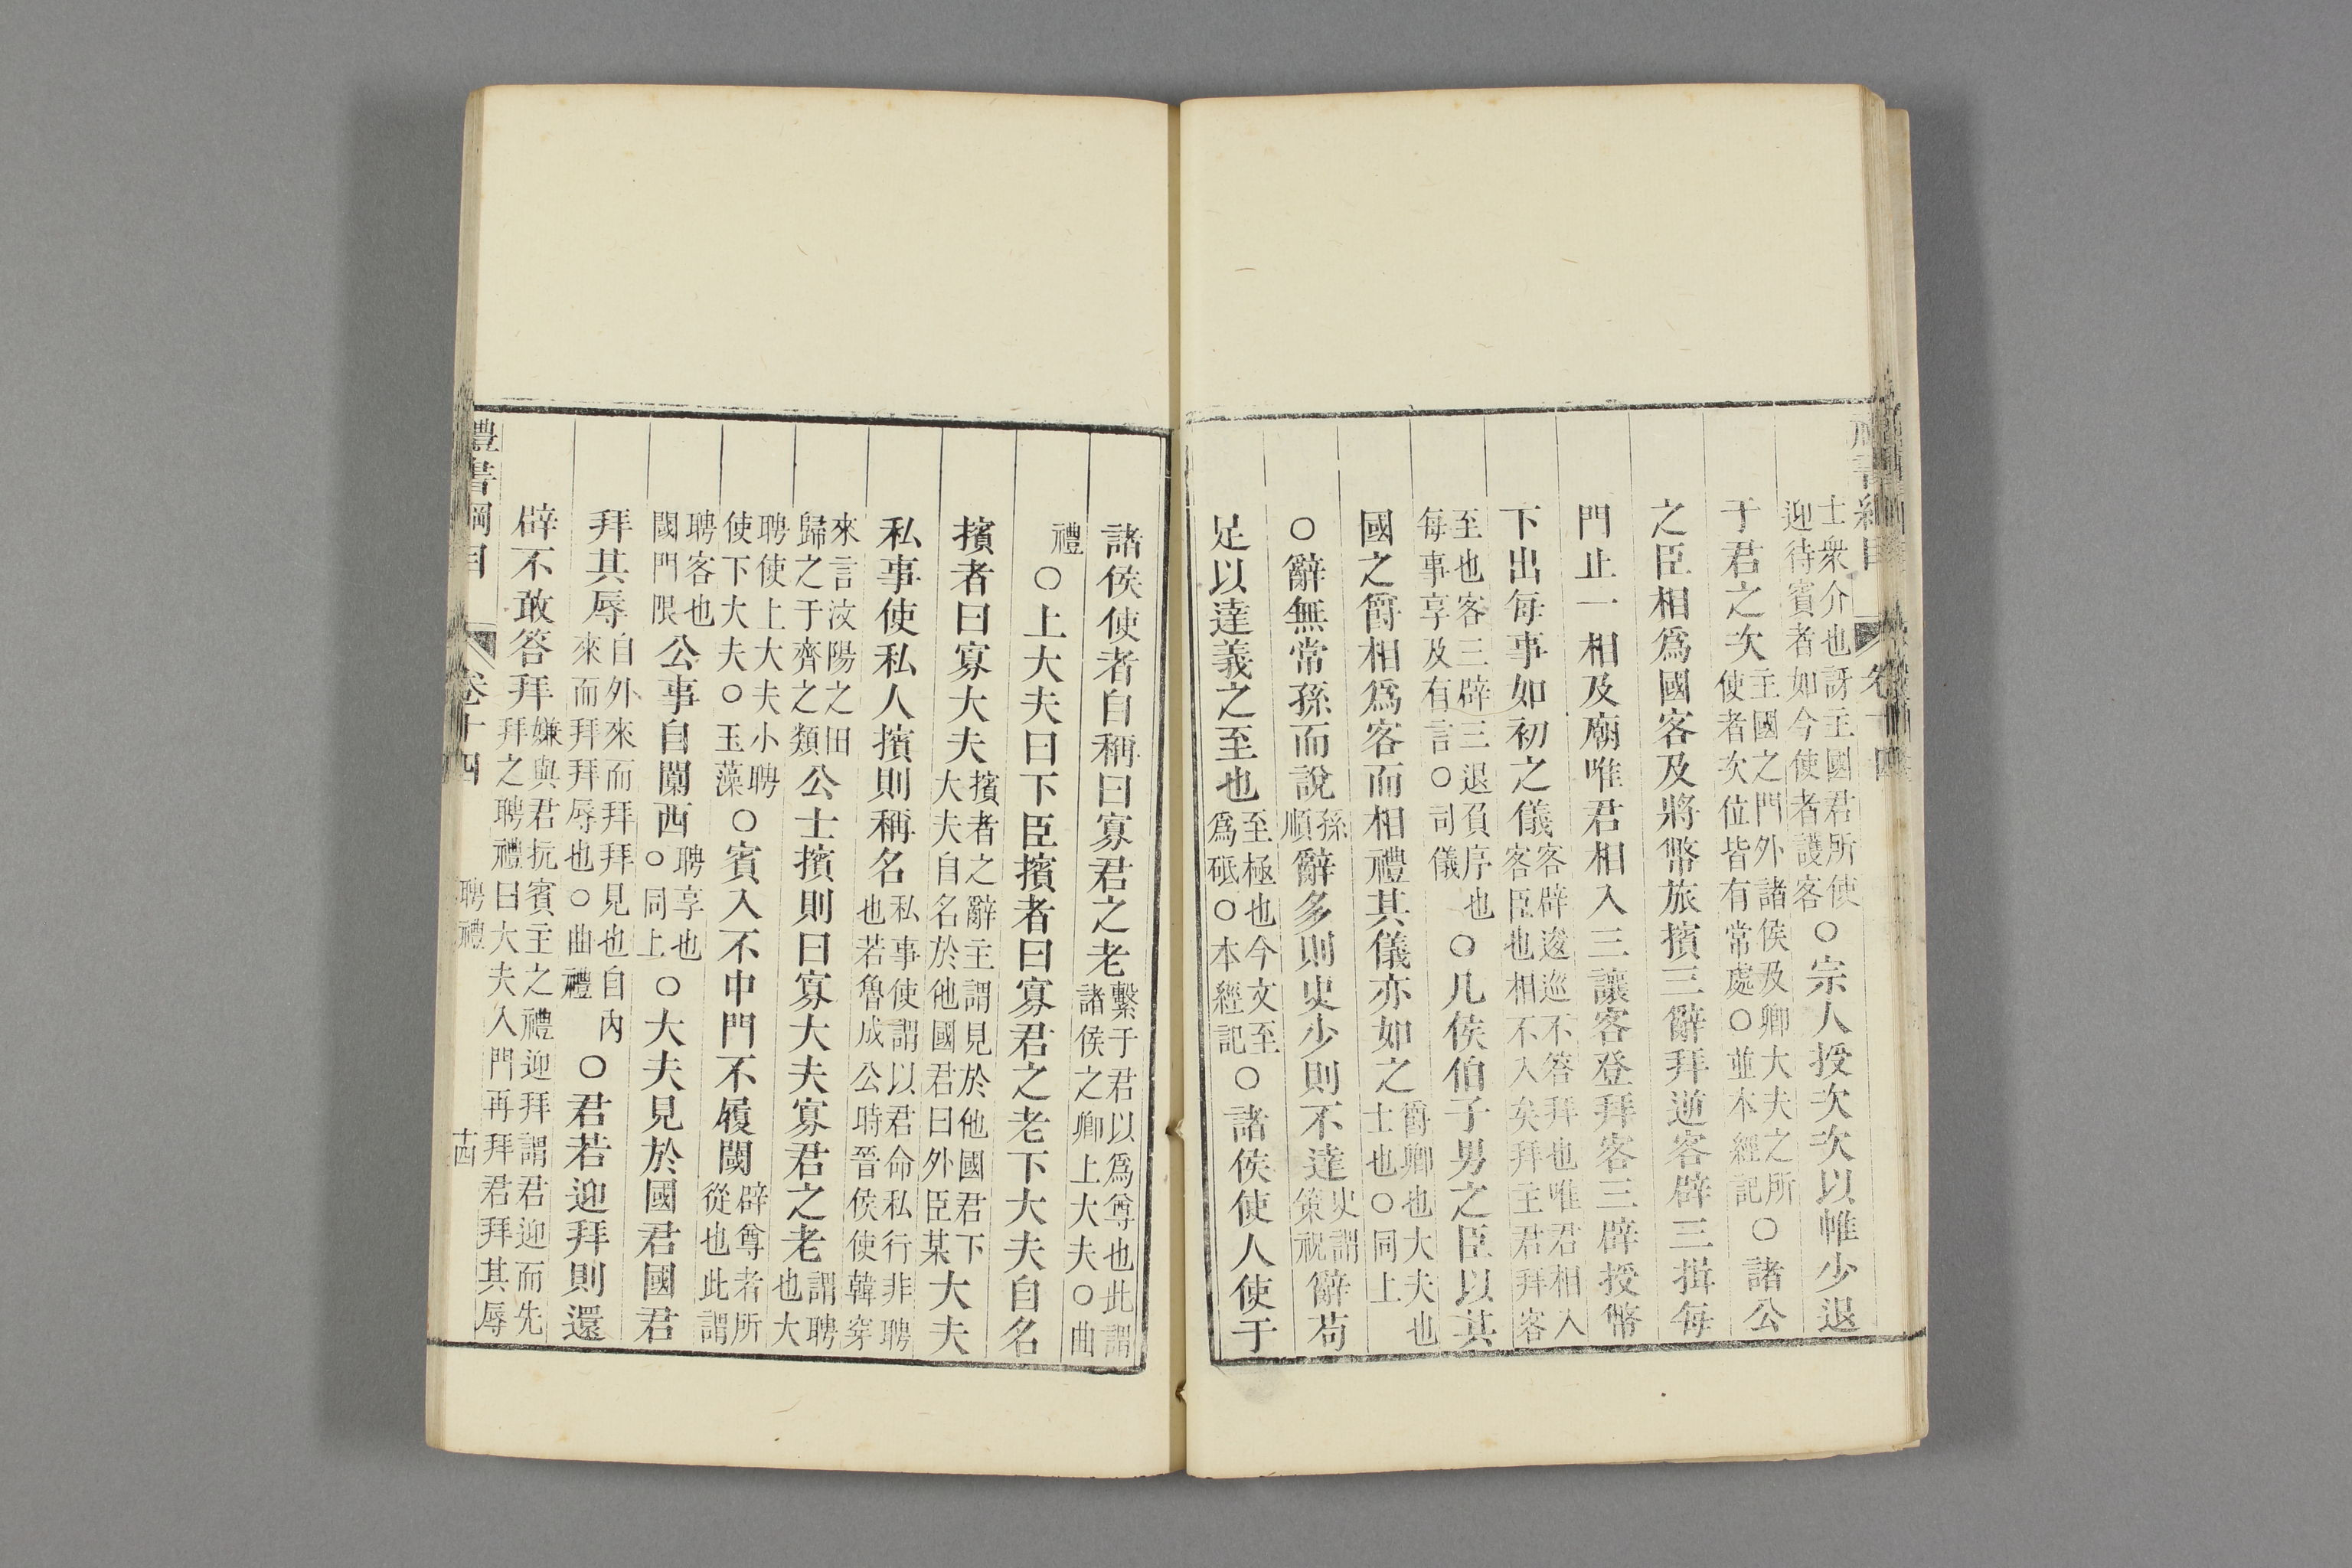 士衆介也訝主國君所使迎待賓者如今使者護客○宗人授次次以帷少退
于君之次主國之門外諸侯及卿大夫之所使者次位皆有常處○並本經記○諸公
之臣相爲國客及將幣旅擯三辭拜逆客辟三揖每
門止一相及廟唯君相入三讓客登拜客三辟授幣
下出每事如初之儀客辟逡巡不答拜也唯君相入客臣也相不入矣拜主君拜客
至也客三辟三退負序也每事享及有言○司儀○凡侯伯子男之臣以其
國之爵相爲客而相禮其儀亦如之爵卿也大夫也士也○同上
○辭無常孫而說孫順辭多則史少則不達史謂策祝辭苟
足以達義之至也至極也今文至爲砥○本經記○諸侯使人使于
諸侯使者自稱曰寡君之老繫于君以爲尊也此謂諸侯之卿上大夫○曲
禮○上大夫曰下臣擯者曰寡君之老下大夫自名
擯者曰寡大夫擯者之辭主謂見於他國君下大夫自名於他國君曰外臣某大夫
私事使私人擯則稱名私事使謂以君命私行非聘也若魯成公時晉侯使韓穿
來言汶陽之田歸之于齊之類公士擯則曰寡大夫寡君之老謂聘也大
聘使上大夫小聘使下大夫○玉藻○賓入不中門不履閾辟尊者所從也此謂
聘客也國門限公事自闑西聘享也○同上○大夫見於國君國君
拜其辱自外來而拜拜見也自內來而拜拜辱也○曲禮○君若迎拜則還
辟不敢答拜嫌與君抗賓主之禮迎拜謂君迎而先拜之聘禮曰大夫入門再拜君拜其辱
禮書綱目 卷十四 聘禮 十四